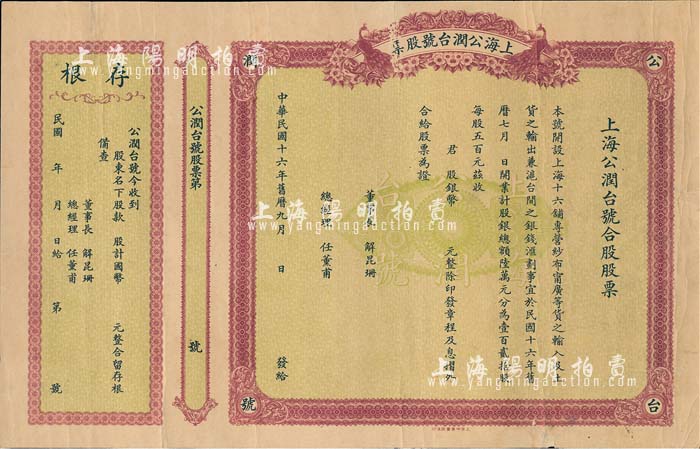 上海公潤台號股票
公
潤
台
號
上海公潤台號合股股票
本號開設上海十六舖專營紗布甯廣等貨之輸入及
貨之輸出兼滬台間之銀錢滙劃事宜於民國十六年舊
曆七月 日開業計股銀總額陸萬元分為壹百貳拾股
每股五百元茲收
君 股銀幣 元整除印發章程及息摺外
合給股票為證
董事長 解昆珊
總經理 任董甫
中華民國十六年舊曆九月 日 發給
公潤台號股票第 號
存根
公潤台號今收到
股東名下股款 股計國幣 元整合留存根
備查
董事長 解昆珊
總經理 任董甫
民國 年 月 日給 第 號
上海陽明拍賣
www.yangmingauction.com
上海陽明拍賣
www.yangmingauction.com
上海陽明拍賣
www.yangmingauction.com